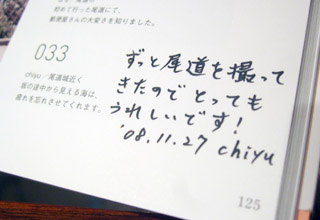 初めて行った尾道にて、
郵便屋さんの大変さを知りました。
033
chiyu / 尾道城近く
坂の途中から見える海は、
疲れを忘れさせてくれます。
ずっと尾道を撮って
きたのでとっても
うれしいです!
'08.11.27 chiyu
125